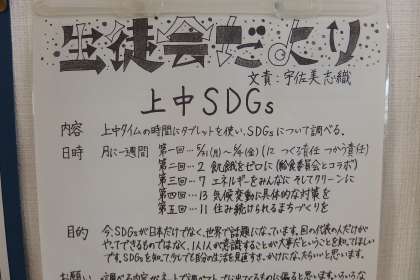 生徒会だより
文責:宇佐美志織
上中SDGs
内容 上中タイムの時間にタブレットを使い、SDGsについて調べる。
日時 月に一週間 第一回…5/31(月)~6/4(金)(12 つくる責任 つかう責任)
第二回…2 飢餓をゼロに(給食委員会とコラボ)
第三回…7 エネルギーをみんなに そしてクリーンに
第四回…13 気候変動に具体的な対策を
第五回…11 住み続けられるまちづくりを
目的 今、SDGsが日本だけでなく、世界で話題になっています。国の代表の人だけが
やってできるものではなく、1人1人が意識することが大事だということを知ってほしい
です。SDGsを知ってもらって自分の生活を見直すきっかけになったらいいと思います。
お願い